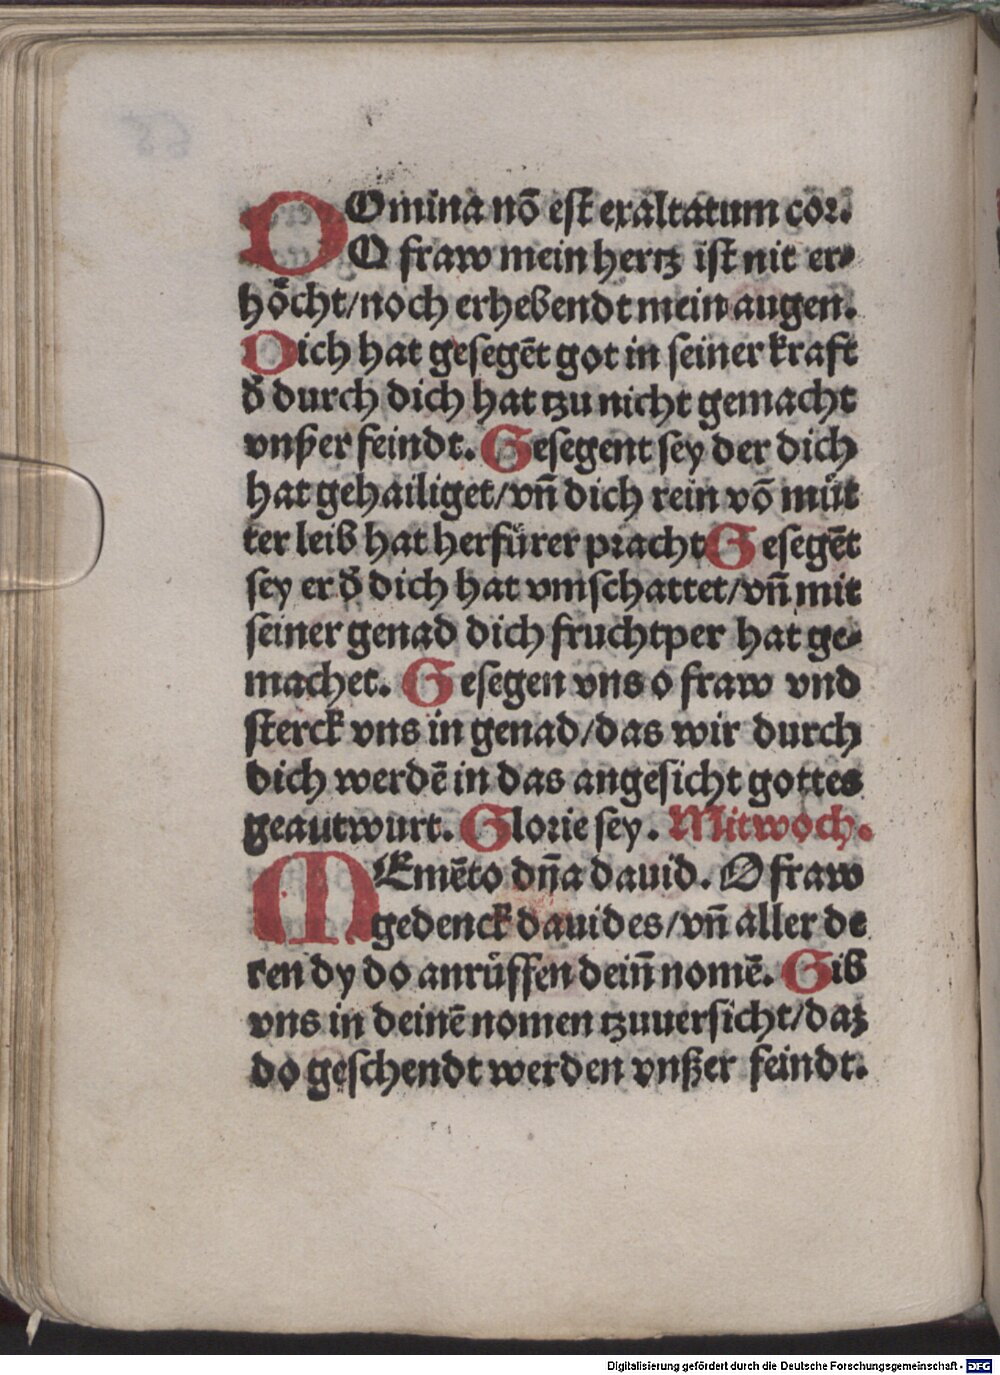 DOmina nō est exaltatum cor.
O fraw mein hertz ist nit er-
höcht/noch erhebendt mein augen.
Dich hat gesegēt got in seiner kraft
d̄ durch dich hat tzu nicht gemacht
vnßer feindt. Gesegent sey der dich
hat gehailiget/vn̄ dich rein vō müt
ter leib hat herfürer pracht Gesegēt
sey er d̄ dich hat vmschattet/vn̄ mit
seiner genad dich fruchtper hat ge-
machet. Gesegen vns o fraw vnd
sterck vns in genad/das wir durch
dich werdē in das angesicht gottes
geautwurt. Glorie sey. Mitwoch.
MEmēto dn̄a dauid. O fraw
gedenck dauides/vn̄ aller de
ren dy do anrüffen dein̄ nomē. Gib
vns in deinē nomen tzuuersicht/daz
do geschendt werden vnßer feindt.
Digitalisierung gefördert durch die Deutsche Forschungsgemeinschaft - DFG